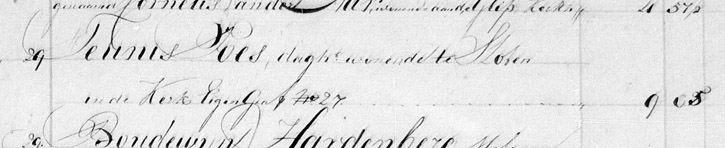 genaamd Cornelis van der wonende aan de Glip Kerk 4 57½
29 TeunisRoes, dagl<sup>r</sup> wonende te Sloten
in de Kerk Eigen Graf N<sup>o</sup> 27 9 05
29 Boudewyn Hardenberg